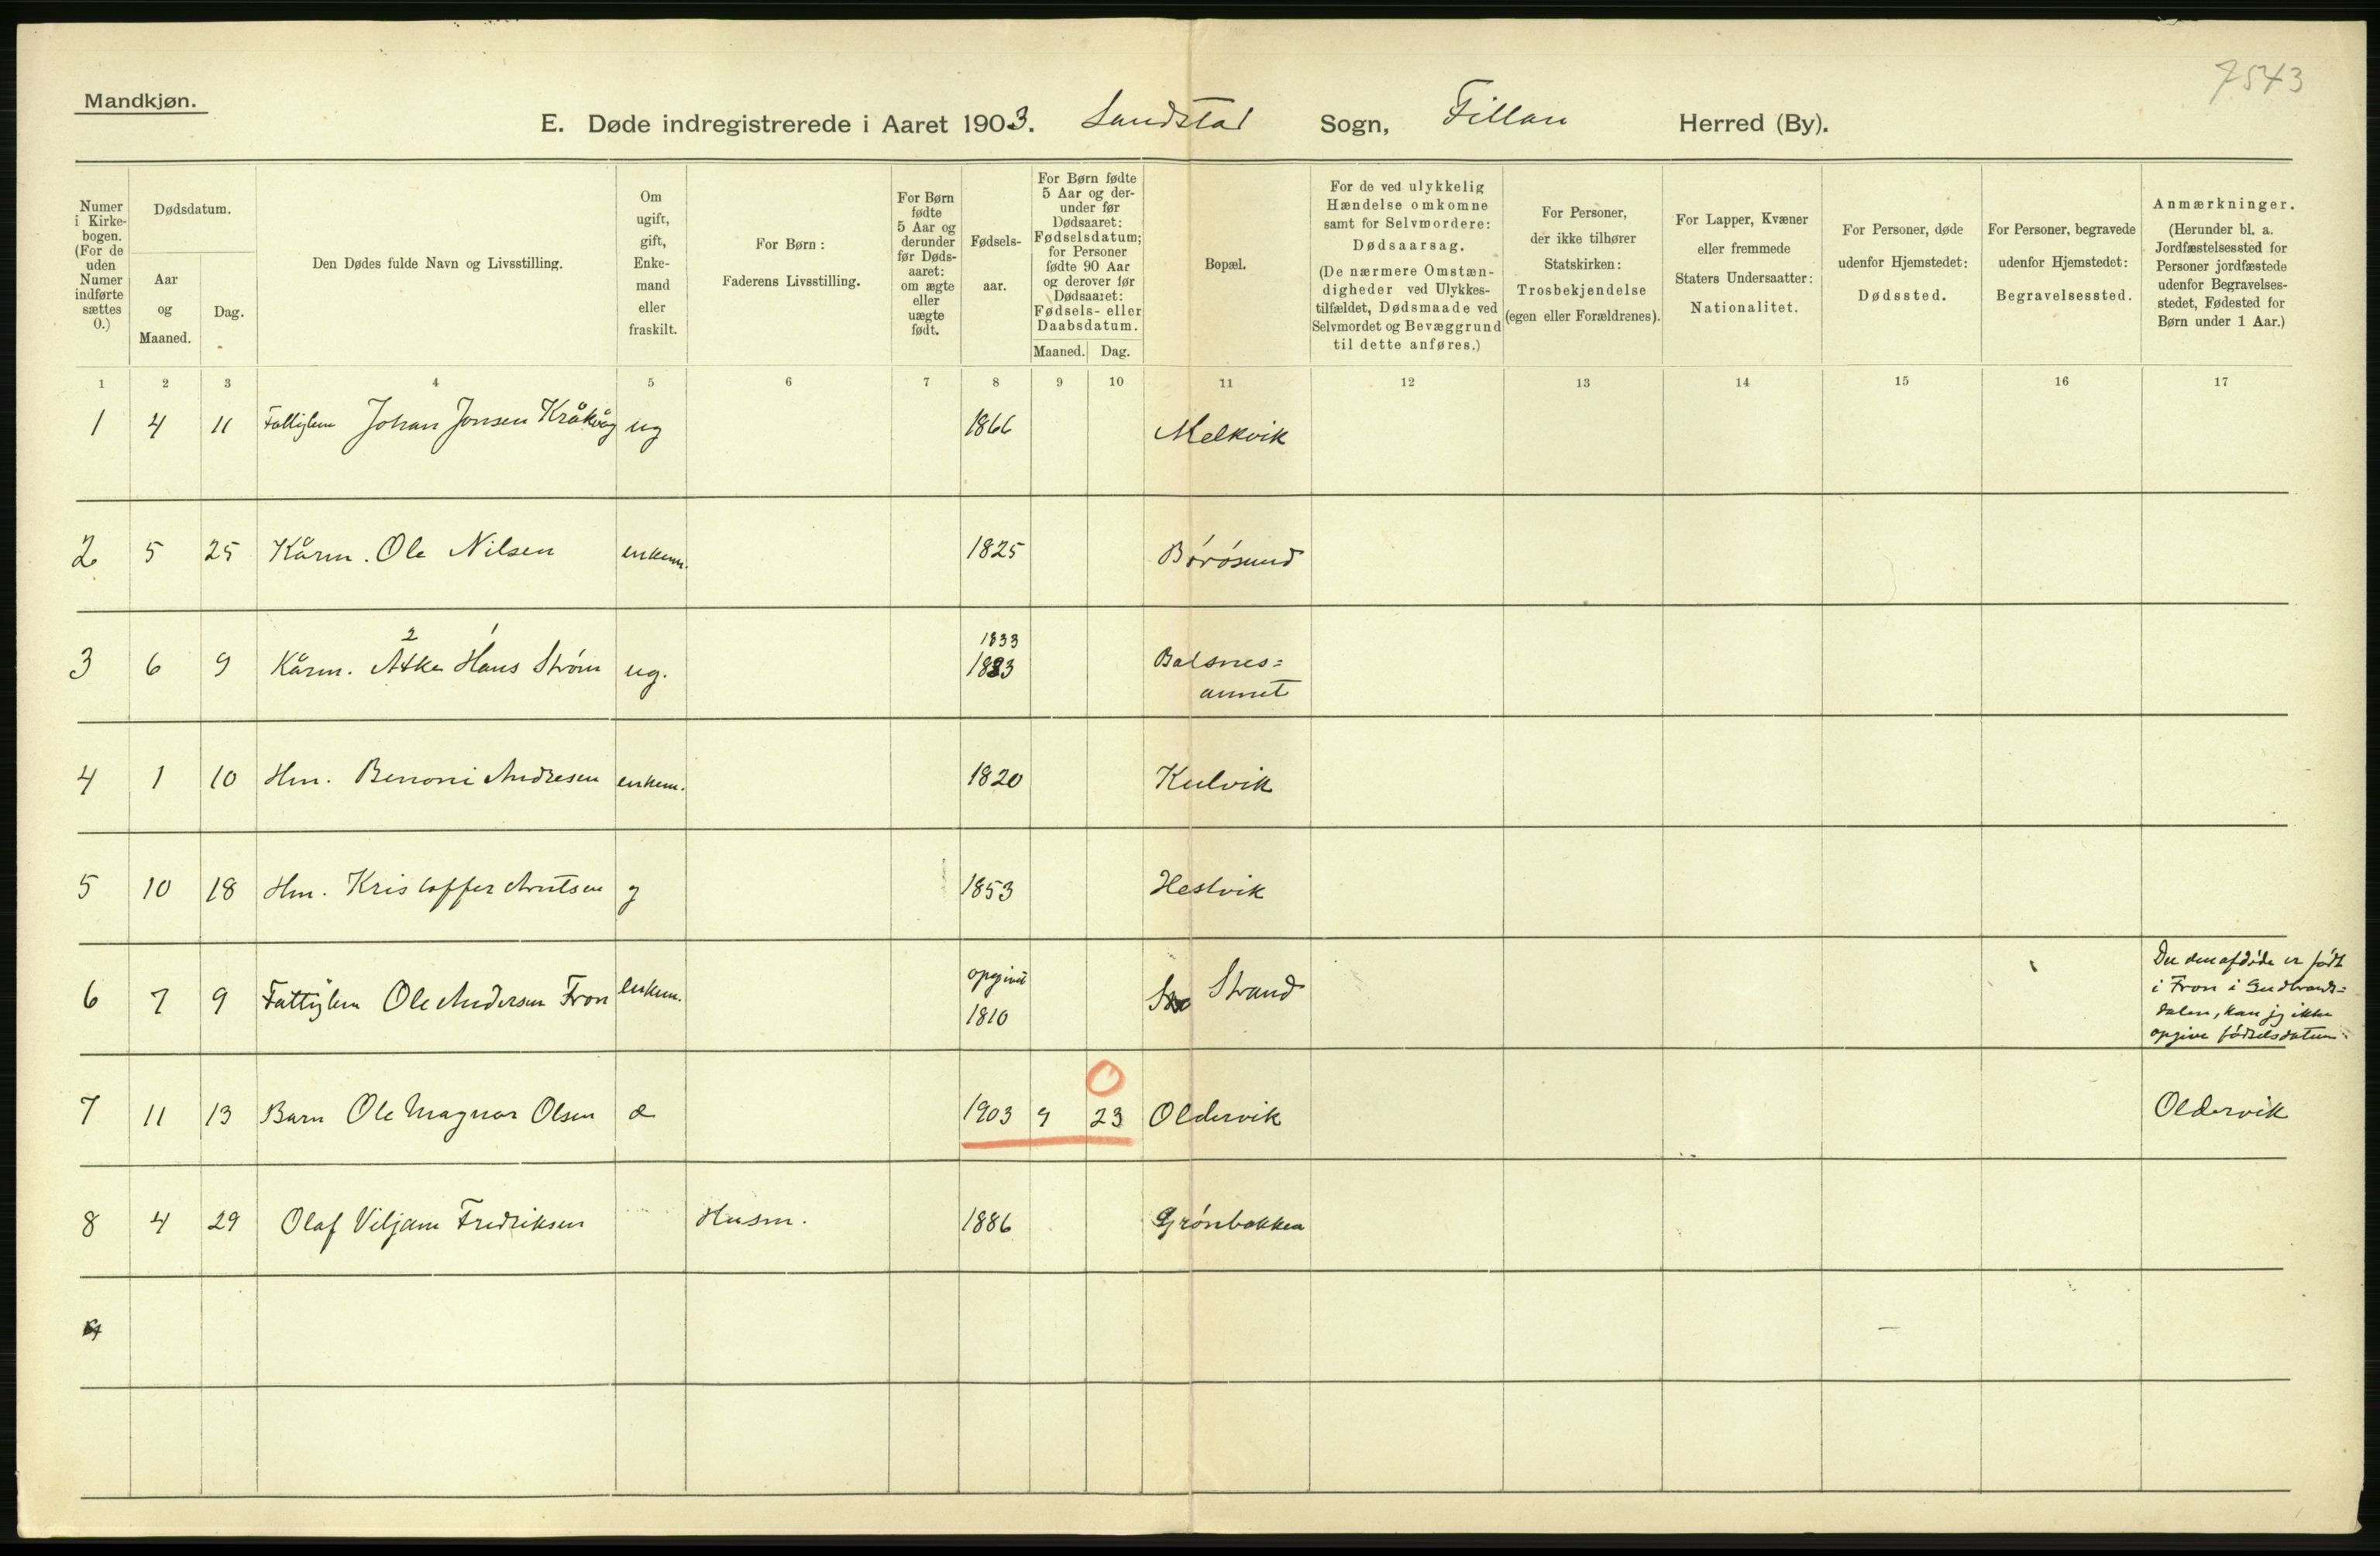 7543
Mandkjøn.
E. Døde indregistrerede i Aaret 1903. Sandstad Sogn, Fillan Herred (By).
Numer i Kirkebogen. (For de uden Numer indførte sættes 0.)
Dødsdatum.
Aar og Maaned.
Dag.
Den Dødes fulde Navn og Livsstilling.
Om ugift, gift, Enkemand eller fraskilt.
For Børn: Faderens Livsstilling.
For Børn fødte 5 Aar og derunder før Dødsaaret: om ægte eller uægte født.
Fødselsaar.
For Børn fødte 5 Aar og derunder før Dødsaaret: Fødselsdatum; for Personer fødte 90 Aar og derover før Dødsaaret: Fødsels- eller Daabsdatum.
Maaned. Dag.
Bopæl.
For de ved ulykkelig Hændelse omkomne samt for Selvmordere: Dødsaarsag. (De nærmere Omstændigheder ved Ulykkestilfældet, Dødsmaade ved Selvmordet og Bevæggrund til dette anføres.)
For Personer, der ikke tilhører Statskirken: Trosbekjendelse (egen eller Forældrenes).
For Lapper, Kvæner eller fremmede Staters Undersaatter: Nationalitet.
For Personer, døde udenfor Hjemstedet: Dødssted.
For Personer, begravede udenfor Hjemstedet: Begravelsessted.
Anmærkninger. (Herunder bl. a. Jordfæstelsessted for Personer jordfæstede udenfor Begravelsesstedet, Fødested for Børn under 1 Aar.)
1 2 3 4 5 6 7 8 9 10 11 12 13 14 15 16 17
1 4 11 Fattiglem Johan Jonsen Kråkvåg ug 1866 Melkvik
2 5 25 Kårm. Ole Nilsen enkem. 1825 Børøsund
2 1 1833
3 6 9 Kårm. Hans Strøm ug. 1833 Balsnes=
aunet
4 1 10 Hm. Benoni Andresen enkem. 1820 Kulvik
5 10 18 Hm. Kristoffer Arntsen g 1853 Hestvik
6 7 9 Fattiglem Ole Andersen Fron enkem. opgivet 1810 Strand
Da den afdøde er født
i Fron i Gudbrands=
dalen, kan jeg ikke
opgive fødselsdatum.
7 11 13 Barn Ole Magnar Olsen 1903 9 23 Oldervik Oldervik
8 4 29 Olaf Viljam Fredriksen Husm. 1886 Grønbakken